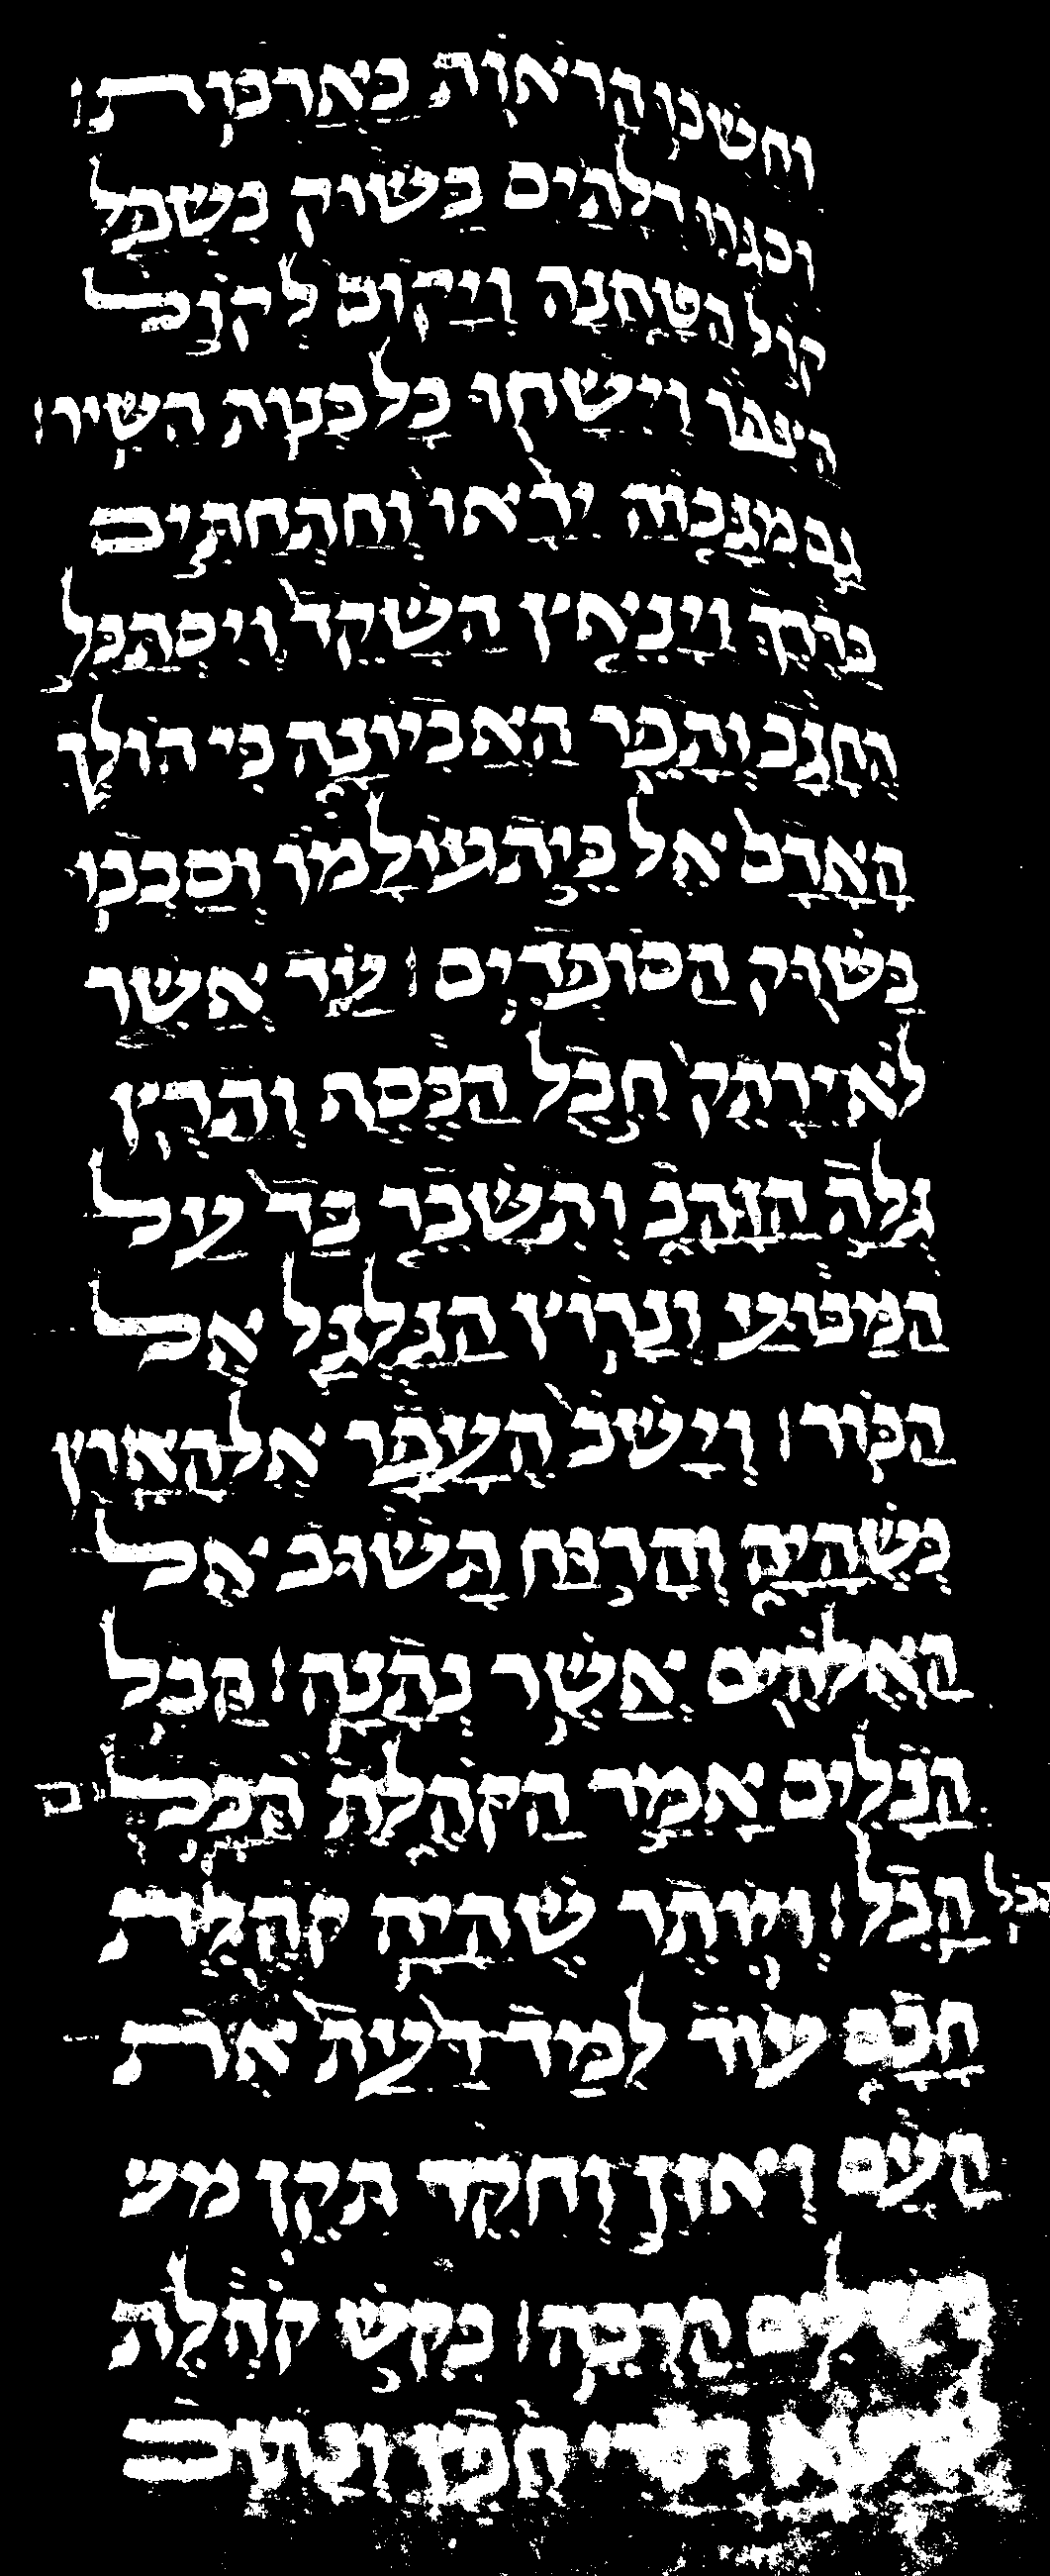 וחשכו הראות בארבות׃
וסגרו דלתים בשוק בשפל
קול הטחנה ויקום לקול
הצפור וישחו כל בנות השיר׃
גם מגבוה יראו וחתחתים
בדרך וינאץ השקד ויסתבל
החגב ותפר האביונה כי הולך
האדם אל בית עולמו וסבבו
בשוק הסופדים ׃ עד אשר
לא ירתק חבל הכסף ותרץ
גלת הזהב ותשבר כד על
המבוע ונרוץ הגלגל אל
הבור ׃ וישב העפר אל הארץ
כשהיה והרוח תשוב אל
האלהים אשר נתנה ׃ הבל
הבלים אמר הקהלת הבל
הבל ׃ ויותר שהיה קהלת
חכם עוד למד דעת את
העם ואזן וחקר תקן מש
משלים הרבה ׃ בקש קהלת
דברי חפץ וכתוב